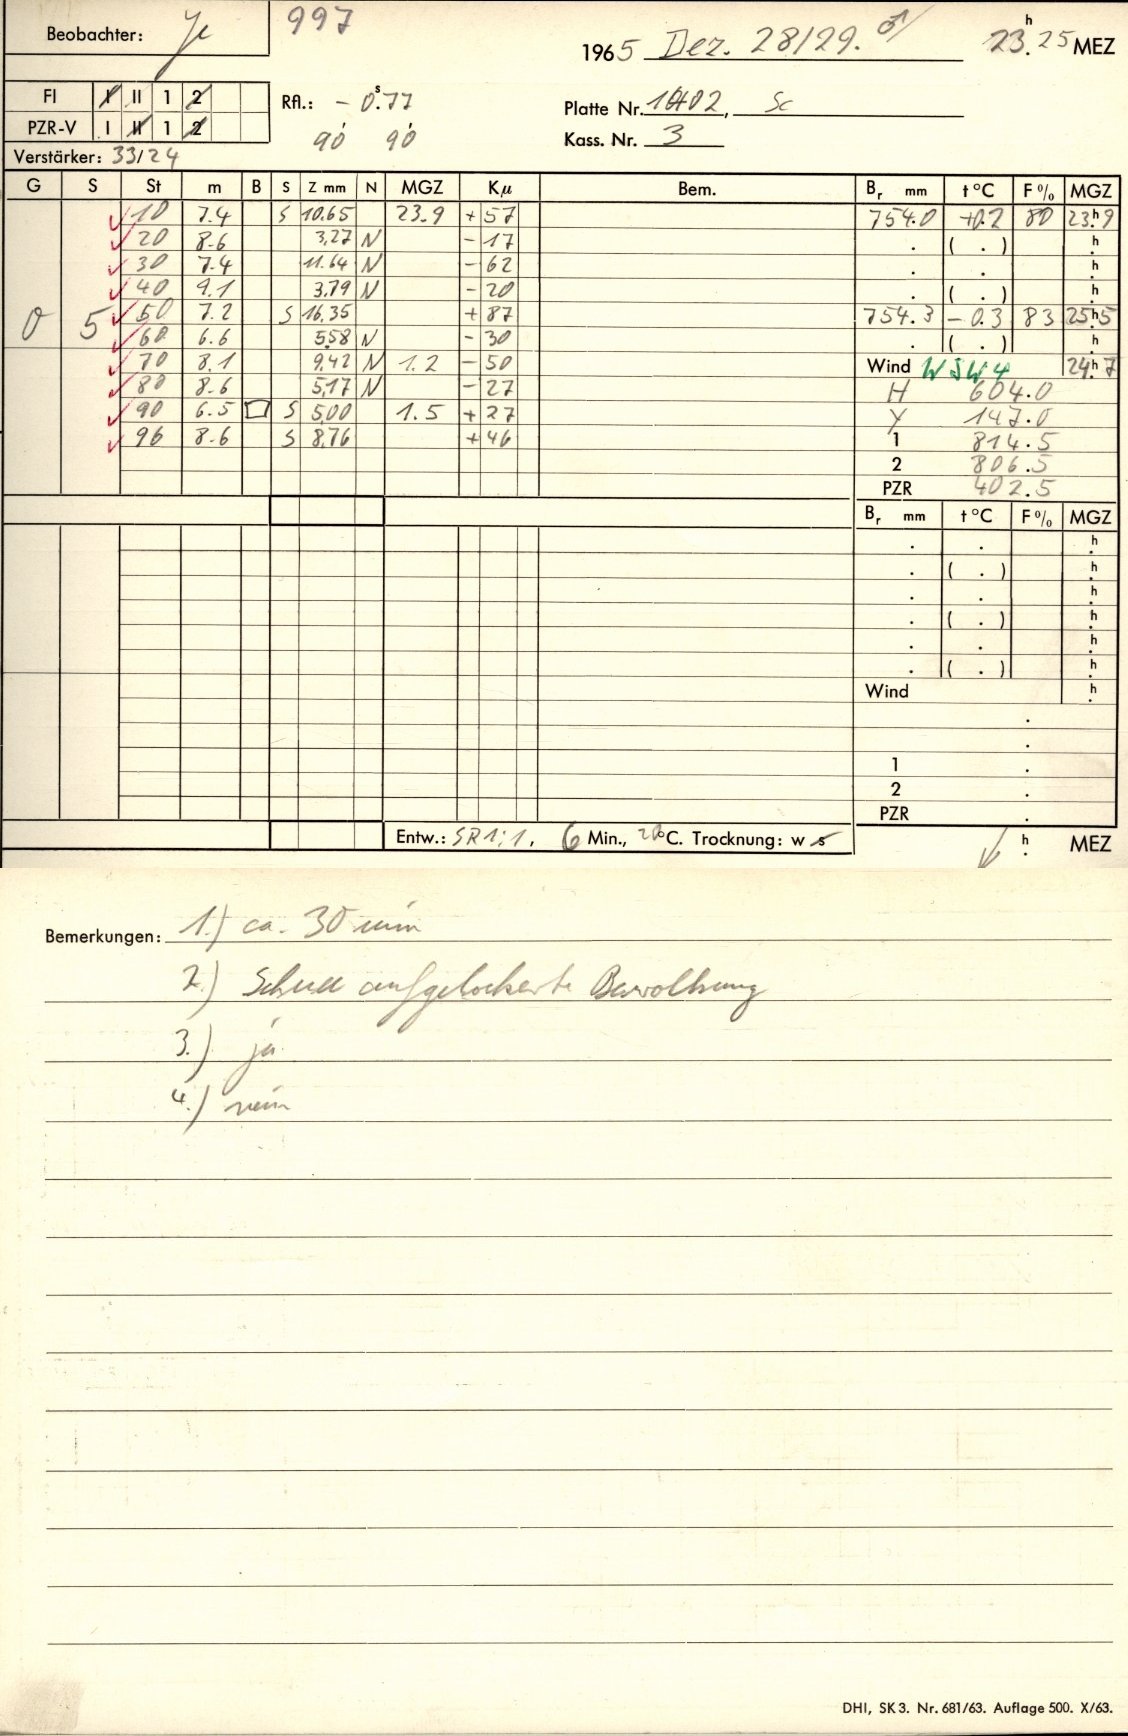 Beobachter: Je 997
1965 Dez. 28/29. ♂ 23h.25 MEZ
FI I II 1 2
PZR-V I II 1 2
Rfl.: - 0s.77
90 90
Platte Nr. 1002, Sc
Kass. Nr. 3
Verstärker: 33/24
G S St m B S Z mm N MGZ Kμ Bem. Br mm t °C F % MGZ
10 7.4 S 10.65 23.9 + 57 754.0 +0.2 80 23h9
20 8.6 3.27 N - 17 . ( . ) h.
30 7.4 11.64 N - 62 . . h.
40 9.1 3.79 N - 20 . ( . ) h.
0 5 50 7.2 S 16.35 + 87 754.3 - 0.3 83 25h5
60 6.6 5.58 N - 30 . ( . ) h.
70 8.1 9.42 N 1.2 - 50 Wind WSW 4 24h.7
80 8.6 5.17 N - 27 H 604.0
90 6.5 S 5.00 1.5 + 27 Y 147.0
96 8.6 S 8.76 + 46 1 814.5
2 806.5
PZR 402.5
Br mm t °C F % MGZ
. . h.
. ( . ) h.
. . h.
. ( . ) h.
. . h.
. ( . ) h.
Wind h.
.
.
1 .
2 .
PZR .
Entw.: SR 1:1, 6 Min., 20°C. Trocknung: w s
h. MEZ
Bemerkungen: 1.) ca. 30 min
2.) aufgelockerte Bewölkung
3.) ja
4.) nein
DHI, SK 3. Nr. 681/63. Auflage 500. X/63.